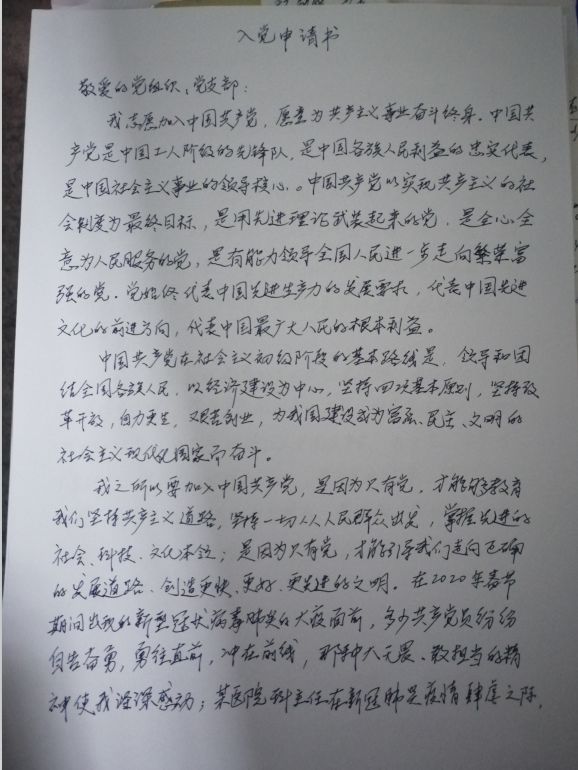 入党申请书
敬爱的党组织、党支部：
我志愿加入中国共产党，愿意为共产主义事业奋斗终身。中国共
产党是中国工人阶级的先锋队，是中国各族人民利益的忠实代表，
是中国社会主义事业的领导核心。中国共产党以实现共产主义的社
会制度为最终目标，是用先进理论武装起来的党，是全心全
意为人民服务的党，是有能力领导全国人民进一步走向繁荣富
强的党。党始终代表中国先进生产力的发展要求，代表中国先进
文化的前进方向，代表中国最广大人民的根本利益。
中国共产党在社会主义初级阶段的基本路线是，领导和团
结全国各族人民，以经济建设为中心，坚持四项基本原则，坚持改
革开放，自力更生，艰苦创业，为我国建设成为富强、民主、文明的
社会主义现代化国家而奋斗。
我之所以要加入中国共产党，是因为只有党，才能够教育
我们坚持共产主义道路，坚持一切从人民群众出发，掌握先进的
社会、科技、文化本领；是因为只有党，才能引导我们走向正确
的发展道路、创造更快、更好、更先进的文明。在2020年春节
期间出现的新型冠状病毒肺炎的大疫面前，多少共产党员纷纷
自告奋勇，勇往直前，冲在前线，那种大无畏、敢担当的精
神使我深深感动；某医院科主任在新冠肺炎疫情肆虐之际，